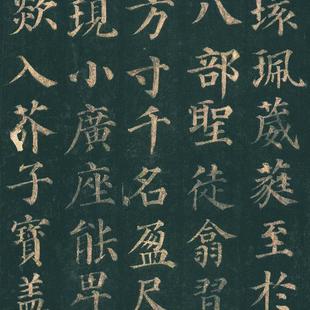 環珮葳蕤至於
八部聖徒翕習
方寸千名盈尺
現小廣座能卑
欻入芥子寶盖